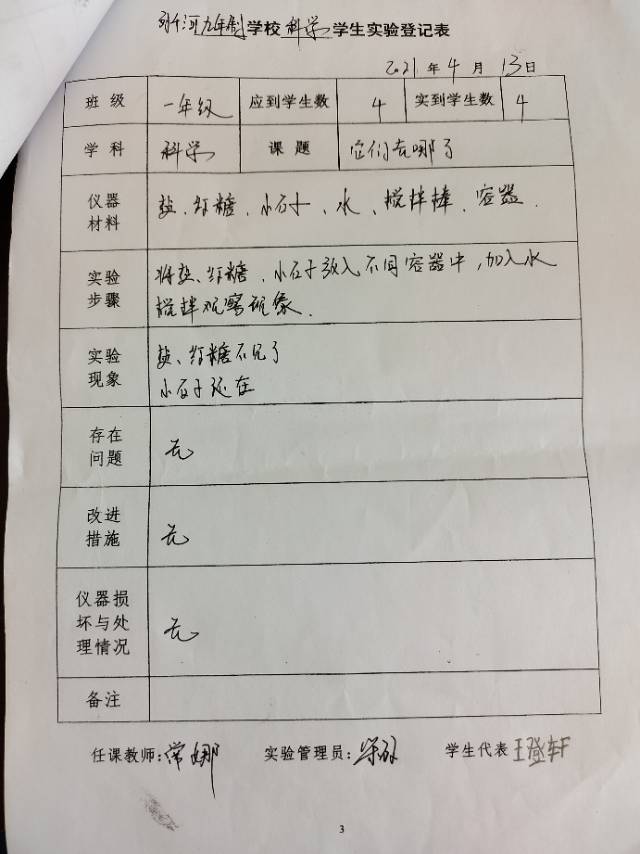 河九年制学校 科学 学生实验登记表
2021 年 4 月 13 日
班 级 一年级 应到学生数 4 实到学生数 4
学 科 科学 课 题 它们去哪了
仪器 材料 盐、红糖、小石子、水、搅拌棒、容器.
实验 步骤 将盐、红糖、小石子放入不同容器中,加入水
搅拌观察现象.
实验 现象 盐、红糖不见了
小石子还在
存在 问题 无
改进 措施 无
仪器损 坏与处 理情况 无
备注
任课教师: 常娜 实验管理员: 学生代表 王登轩
3